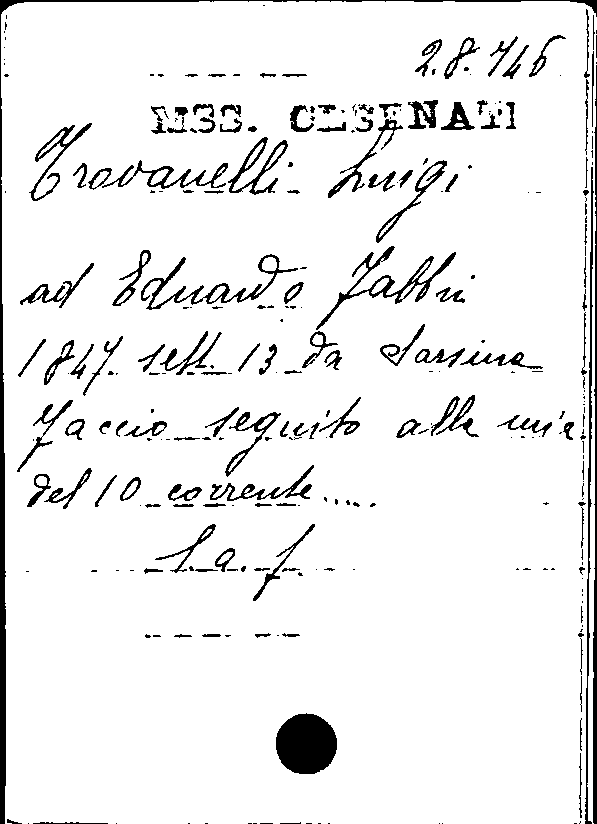 2.8.746
MSS. CESENATI
Travanelli Luigi
ad Eduardo Fabbri
1847. sett. 13 da Sarsina
Faccio seguito alla mia
del 10 corrente....
L. a. f.